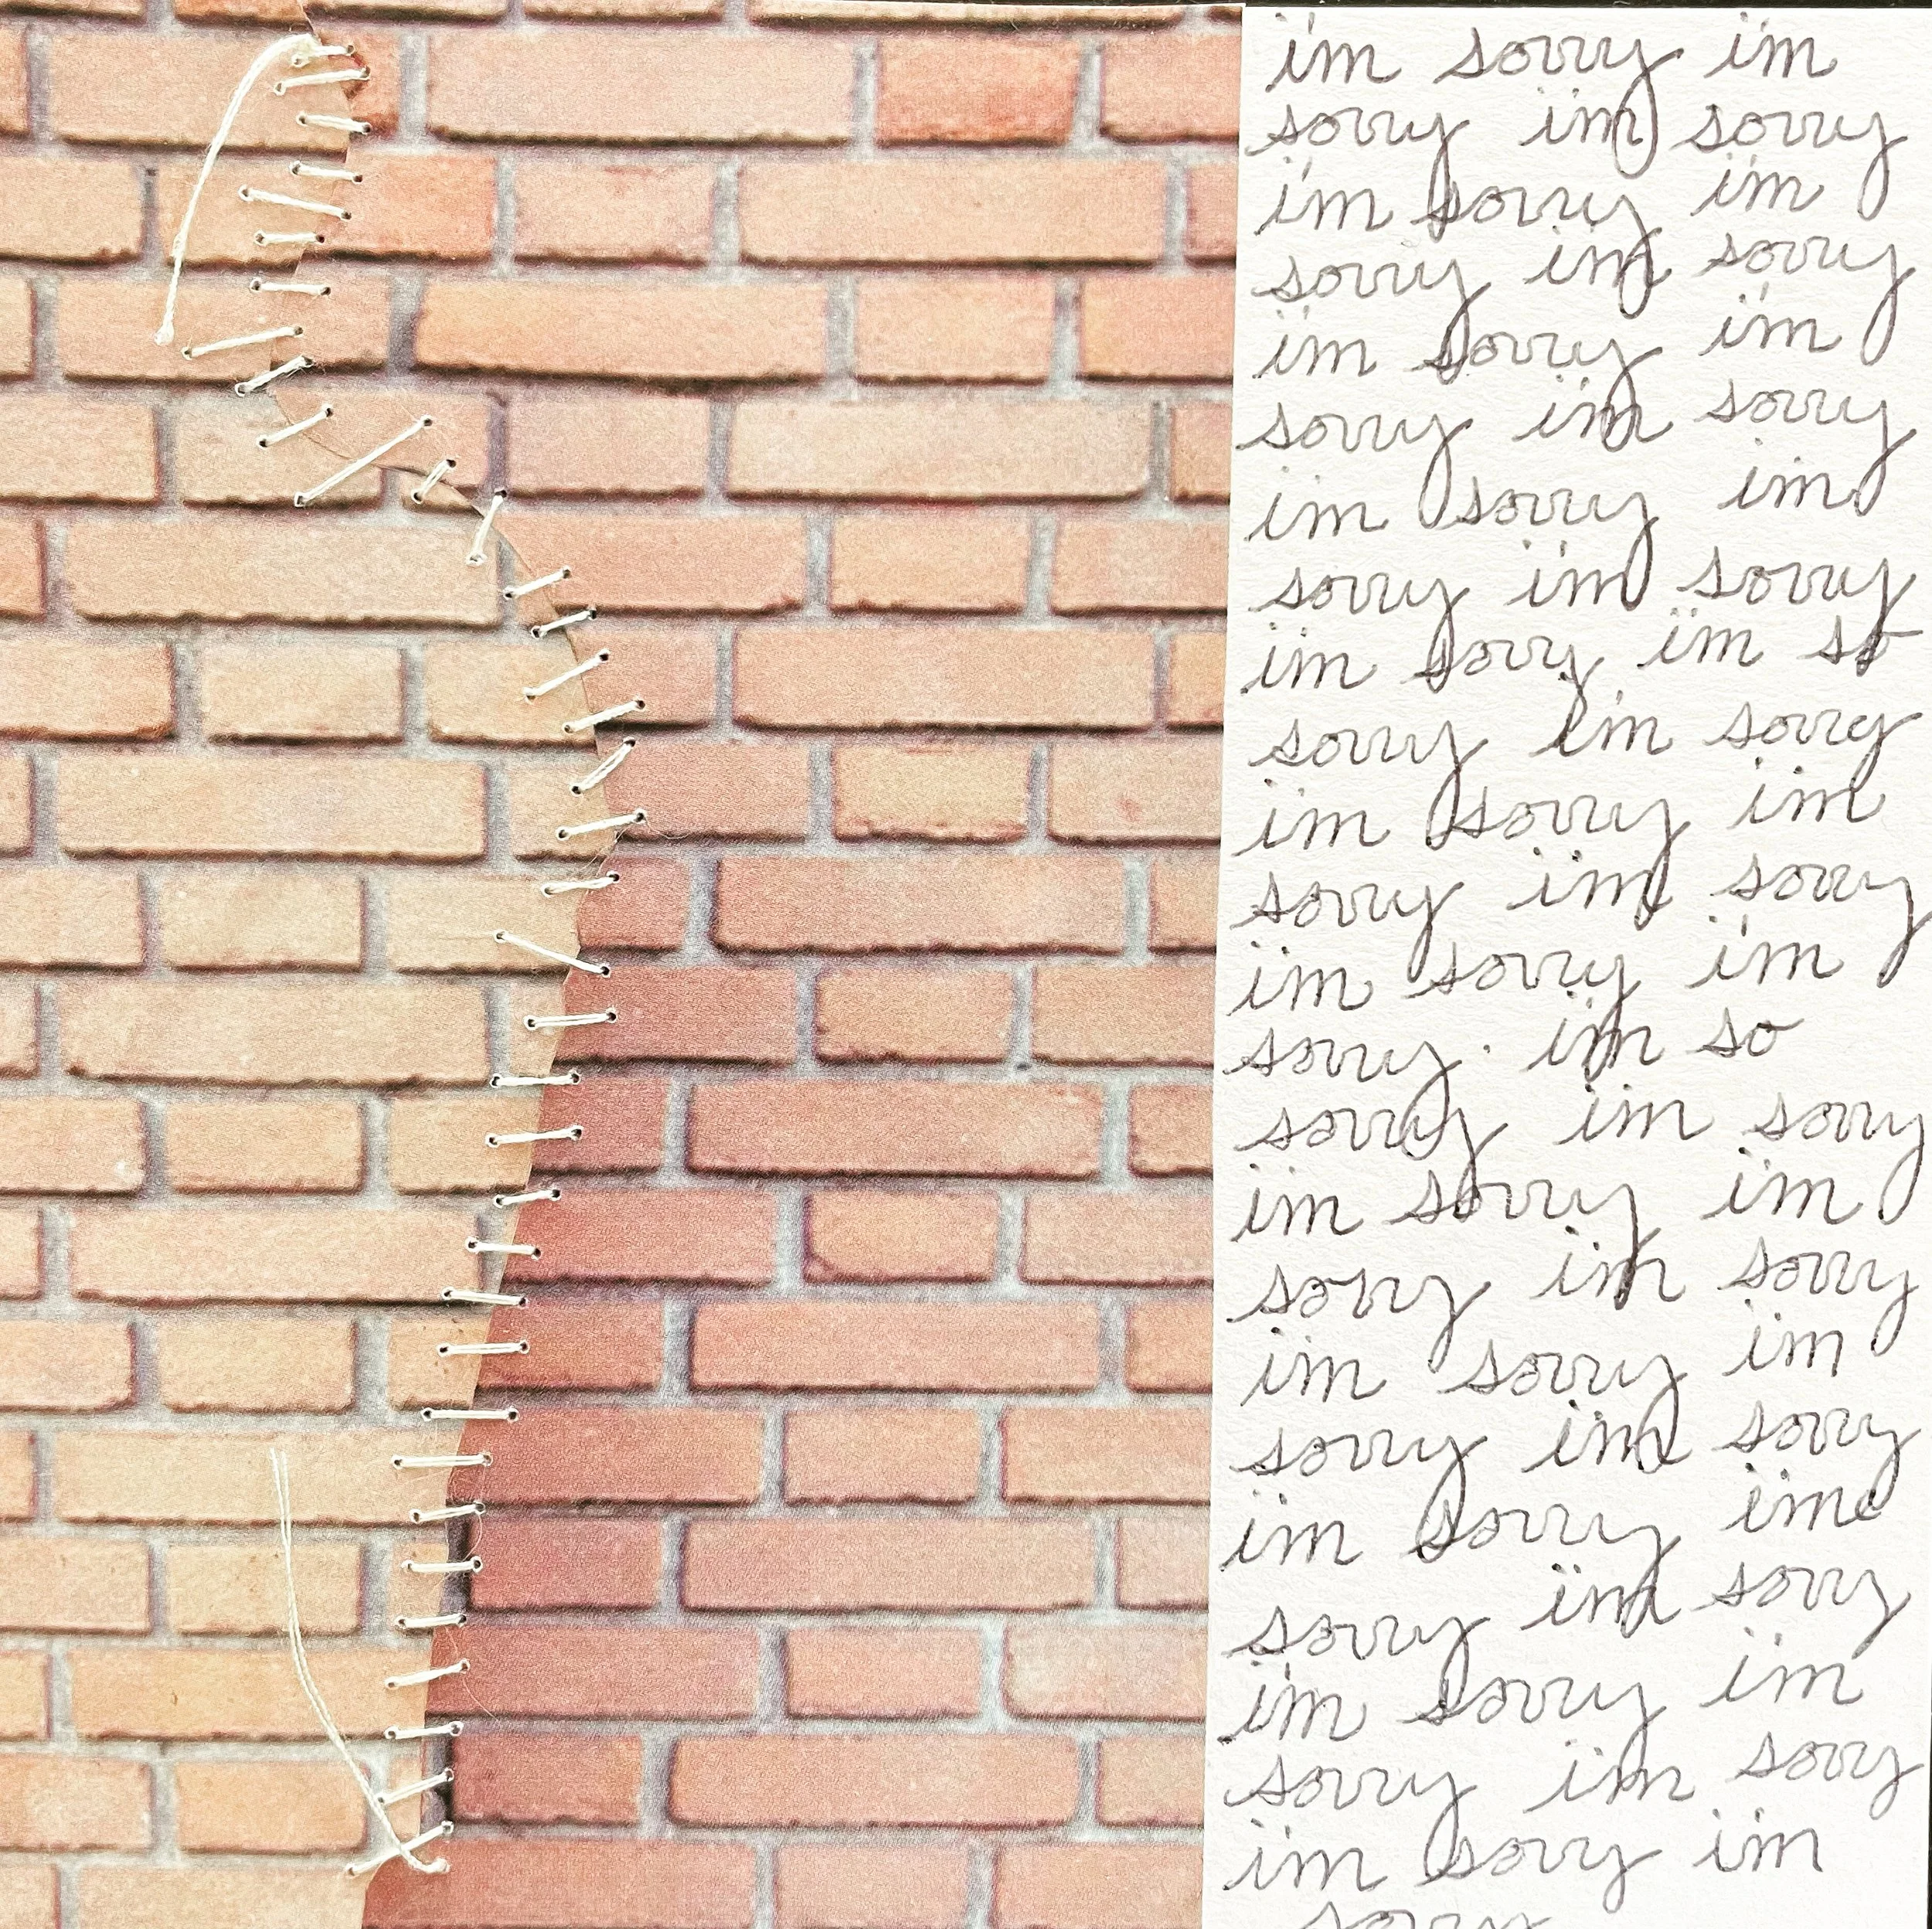 i'm sorry i'm
sorry i'm sorry
i'm sorry i'm
sorry i'm sorry
i'm sorry i'm
sorry i'm sorry
i'm sorry i'm
sorry i'm sorry
i'm sorry i'm so
sorry i'm sorry
i'm sorry i'm
sorry i'm sorry
i'm sorry i'm
sorry. i'm so
sorry i'm sorry
i'm sorry i'm
sorry i'm sorry
i'm sorry i'm
sorry i'm sorry
i'm sorry i'm
sorry i'm sorry
i'm sorry i'm
sorry i'm sorry
i'm sorry i'm
sorry